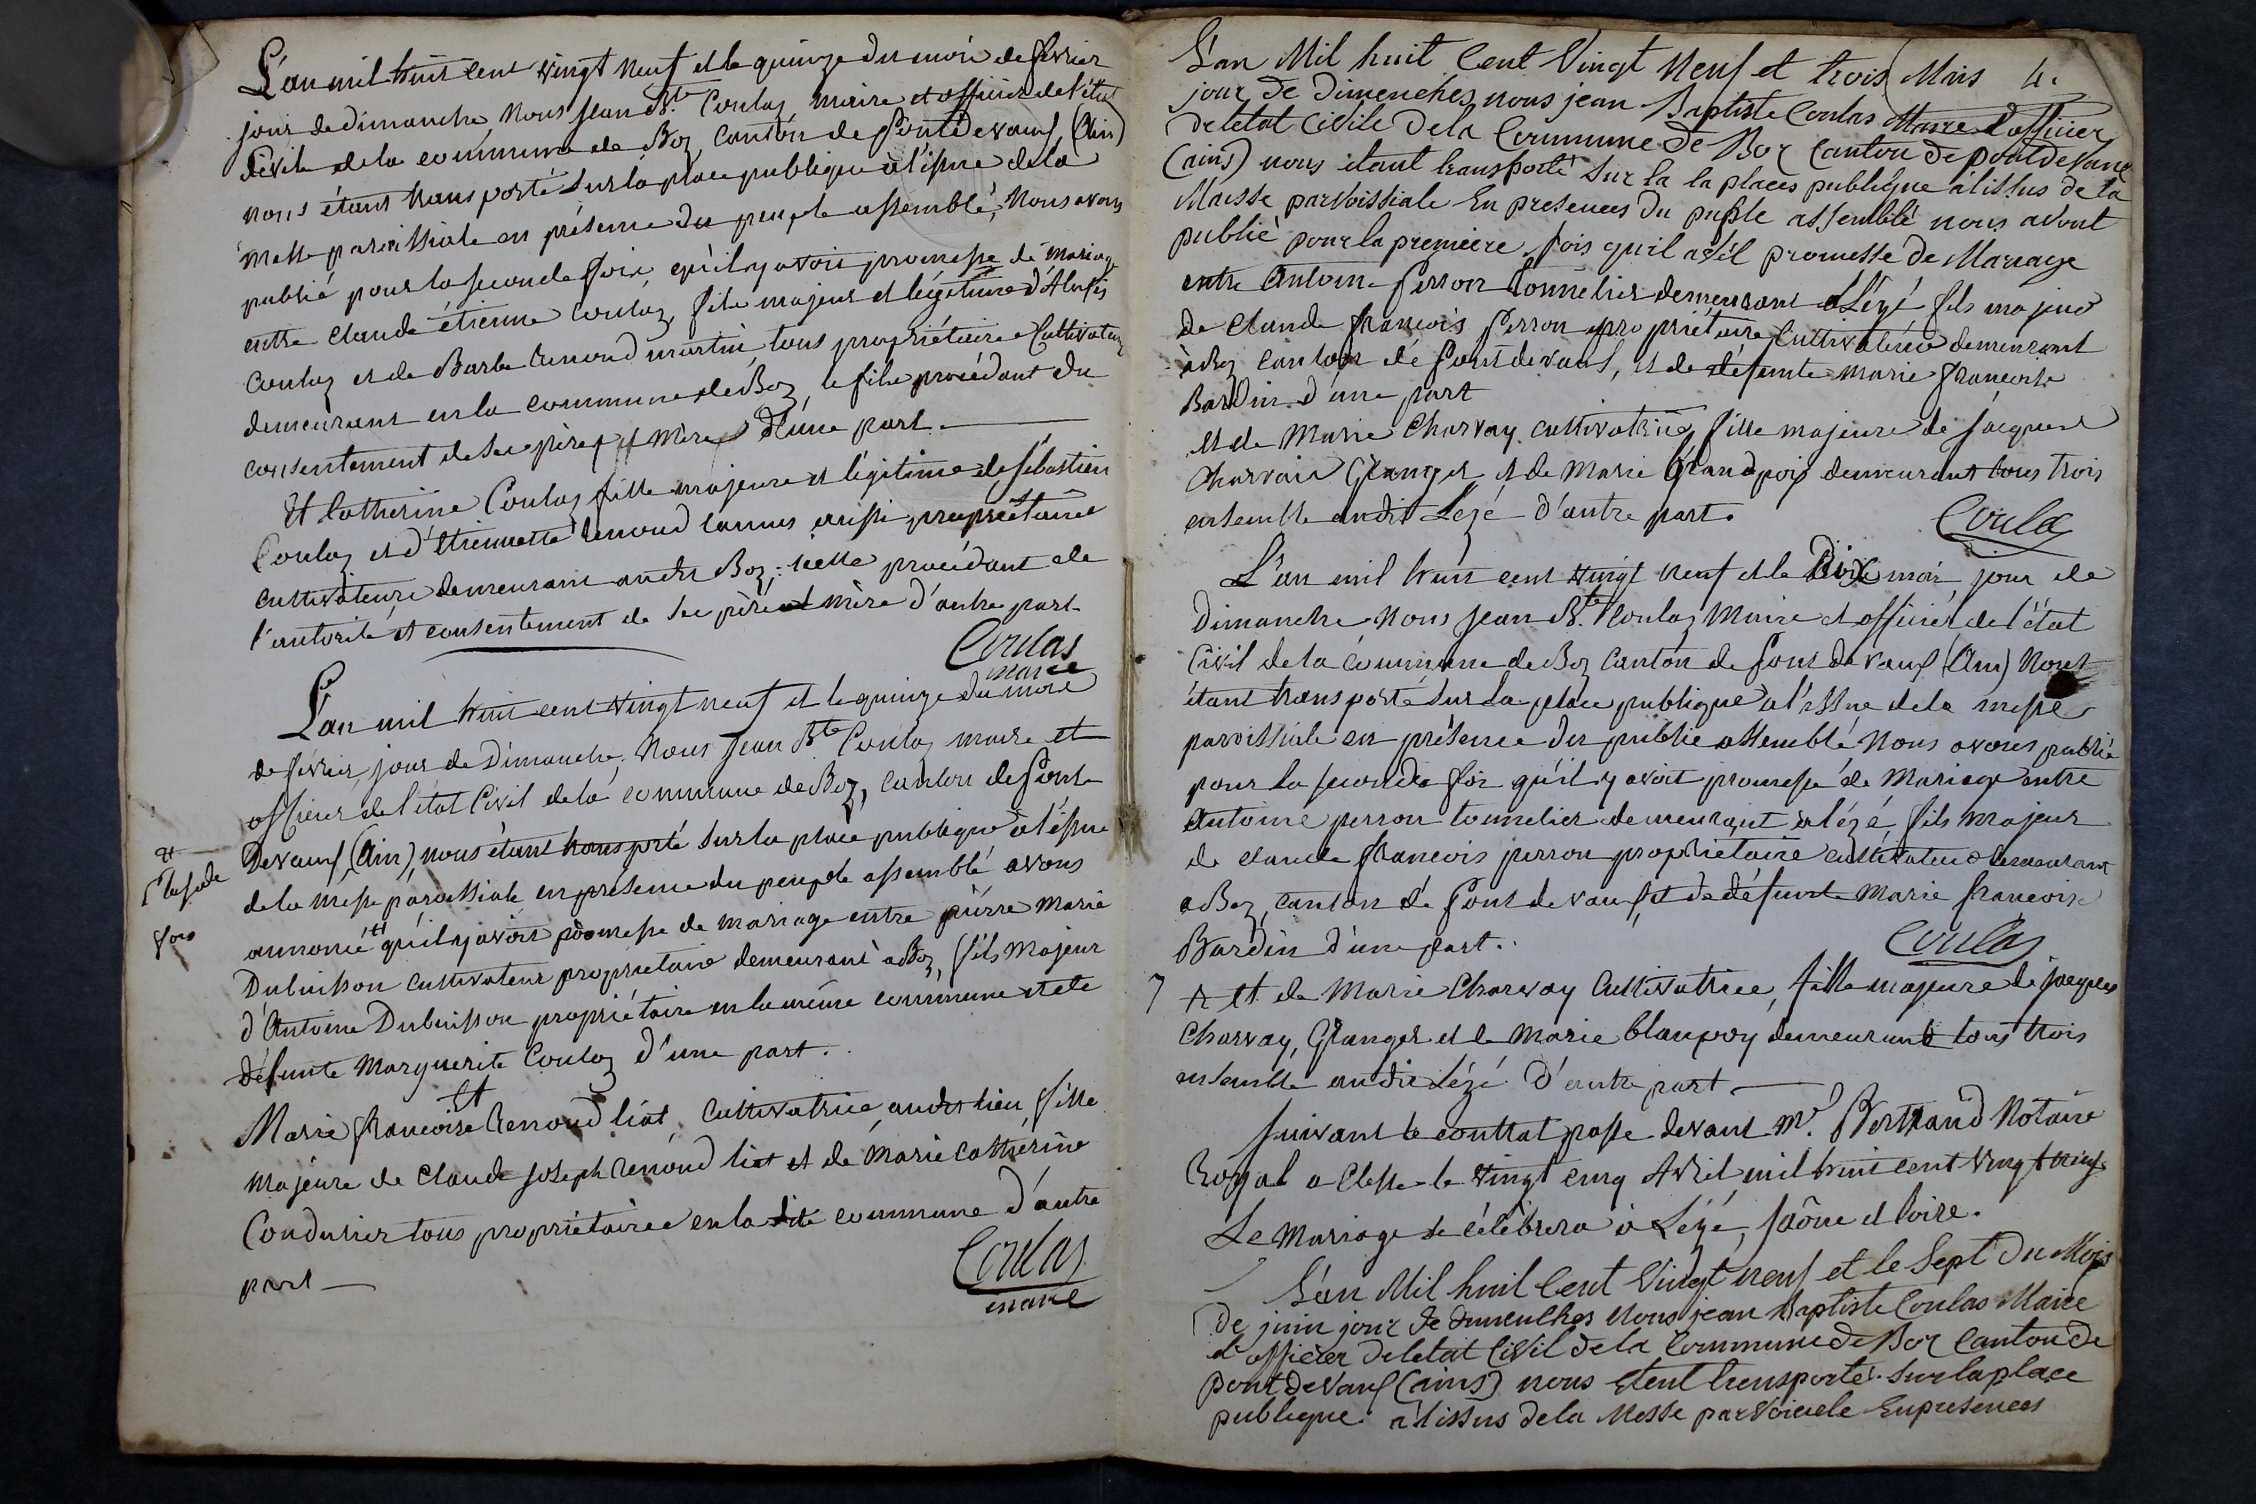 L'an mil huit cent vingt neuf et le quinze du mois de fevrier
jour de dimanche, Nous Jean Bte Coulas maire et officier de l'état
Civil de la commune de Boz, canton de Pontdevaux, (Ain)
nous étant transporté sur la place publique à l'issue de la
messe paroissiale en présence du peuple assemblé, Nous avons
publié pour la seconde fois qu'il y avoit promesse de mariage
entre claude étienne Coulaz, fils majeur et légitime d'Alexis
Coulaz et de Barbe Renoud martin, tous propriétaires Cultivateurs
demeurant en la commune de Boz, le fils procédant du
consentement de ses père et mère d'une part.
Et Catherine Coulaz fille majeure et légitime de sébastien
Coulaz et d'étiennette Renoud aussi propriétaires
cultivateurs demeurant audit Boz; icelle procédant de
l'autorité et consentement de ses père et mère d'autre part
Coulas
maire
L'an mil huit cent vingt neuf et le quinze du mois
de févrièr, jour de Dimanche, Nous Jean Bte Coulaz maire et
officier de l'état Civil de la commune de Boz, canton de Pont
Devaux, (Ain), nous étant transporté sur la place publique à l'issue
de la messe paroissiale en présence du peuple assemblé avons
et
fois
annoncé qu'il y avoit promesse de mariage entre pierre marie
Dubuisson cultivateur propriétaire demeurant à Boz, fils majeur
d'Antoine Dubuisson propriétaire en la même commune et de
défunte Marguerite Coulaz d'une part.
Et
Marie françoise Renoud liat, cultivatrice audit lieu, fille
majeure de Claude Joseph Renoud liat et de Marie Catherine
Condurier tous propriétaires en la dite commune d'autre
part
Coulas
maire
L'an Mil huit Cent Vingt Neuf et trois Mais 4.
jour de dimenches nous jean Baptiste Coulas Maire et officier
de letat Civile de la Commune de Boz Canton de pont de Vaux
(ains) nous étant transporté sur la la places publique à lissus de la
Masse parvoissiale En presences du puple assemblé nous avont
publié pour la premiere fois quil promesse de Mariage
entre Antoine Perron Tonnelier demeurant à Lézé fils majeur
de Claude françois Perron propriétaire Cultivateur demeurant
à Boz canton de Pont de vaux, et de défunte marie françoise
Bardin d'une part
et de Marie Charvay cultivatrice, fille majeure de Jacques
Charvais Granger et de Marie demeurant tous trois
ensemble audit Lezé d'autre part.
Coulas
L'an mil huit cent vingt neuf et le Dix mai jour de
Dimanche Nous Jean Bte Coulaz Maire et officier de l'état
Civil de la commune de Boz Canton de Pont de vaux (Ain) Nous
étant transporté sur la place publique à l'issue de la messe
paroissiale en présence du public assemblé, Nous avons publié
pour la seconde fois qu'il y avoit promesse de Mariage entre
Antoine perron tonnelier demeurant à lézé, fils majeur
de claude françois perron propriétaire cultivateur demeurant
a Boz, canton de Pont de vaux, et de défunte Marie françoise
Bardin d'une part.
Coulas
7 et de Marie Charvay Cultivatrice, fille majeure de jacques
Charvay, Granger et de Marie blanpoy demeurant tous trois
ensemble audit Lézé d'autre part
suivant le contrat passe devant Mr. Bertrand Notaire
Royal a Clesse le vingt cinq Avril mil huit cent vingt neuf
Le Mariage se célébrera à Lézé, Saône et loire.
L'an Mil huit Cent Vingt neuf et le Sept du Mois
de juin jour de dimenches Nous jean Baptiste Coulas Maire
et officier de letat Civil de la Commune de Boz Canton de
pont de Vaux (ains) nous étent trensporté sur la place
publique à lissus de la Messe parvoiciele En presences